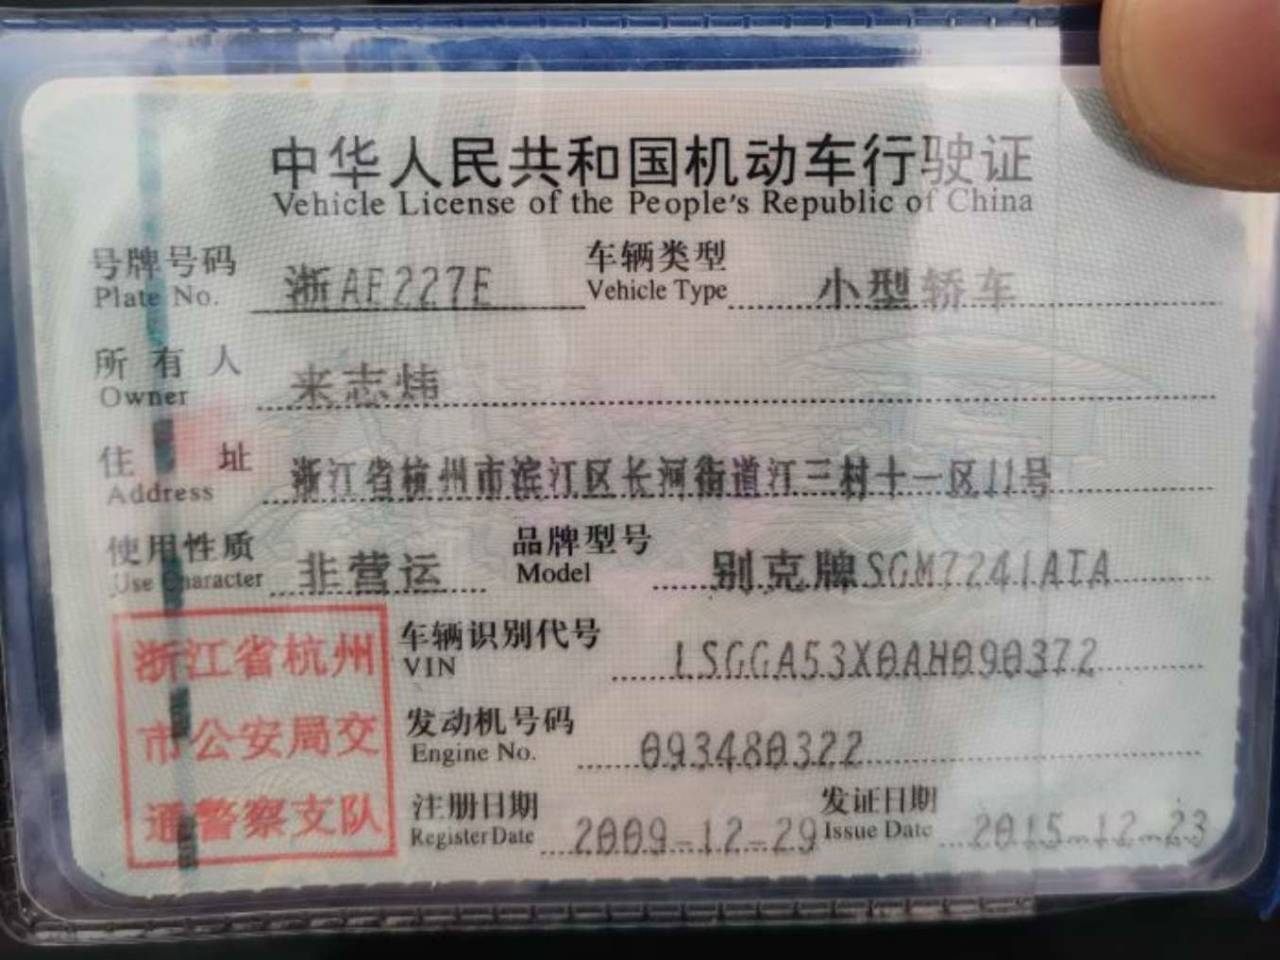 中华人民共和国机动车行驶证
Vehicle License of the People's Republic of China
号牌号码 浙AF227E 车辆类型 小型轿车
Plate No. Vehicle Type
所有人 来志炜
Owner
住址 浙江省杭州市滨江区长河街道江三村十一区11号
Address
使用性质 非营运 品牌型号 别克牌SGM7241ATA
Use Character Model
浙江省杭州
市公安局交
通警察支队
车辆识别代号 LSGGA53X0AH090372
VIN
发动机号码 093480322
Engine No.
注册日期 2009-12-29 发证日期 2015-12-23
Register Date Issue Date